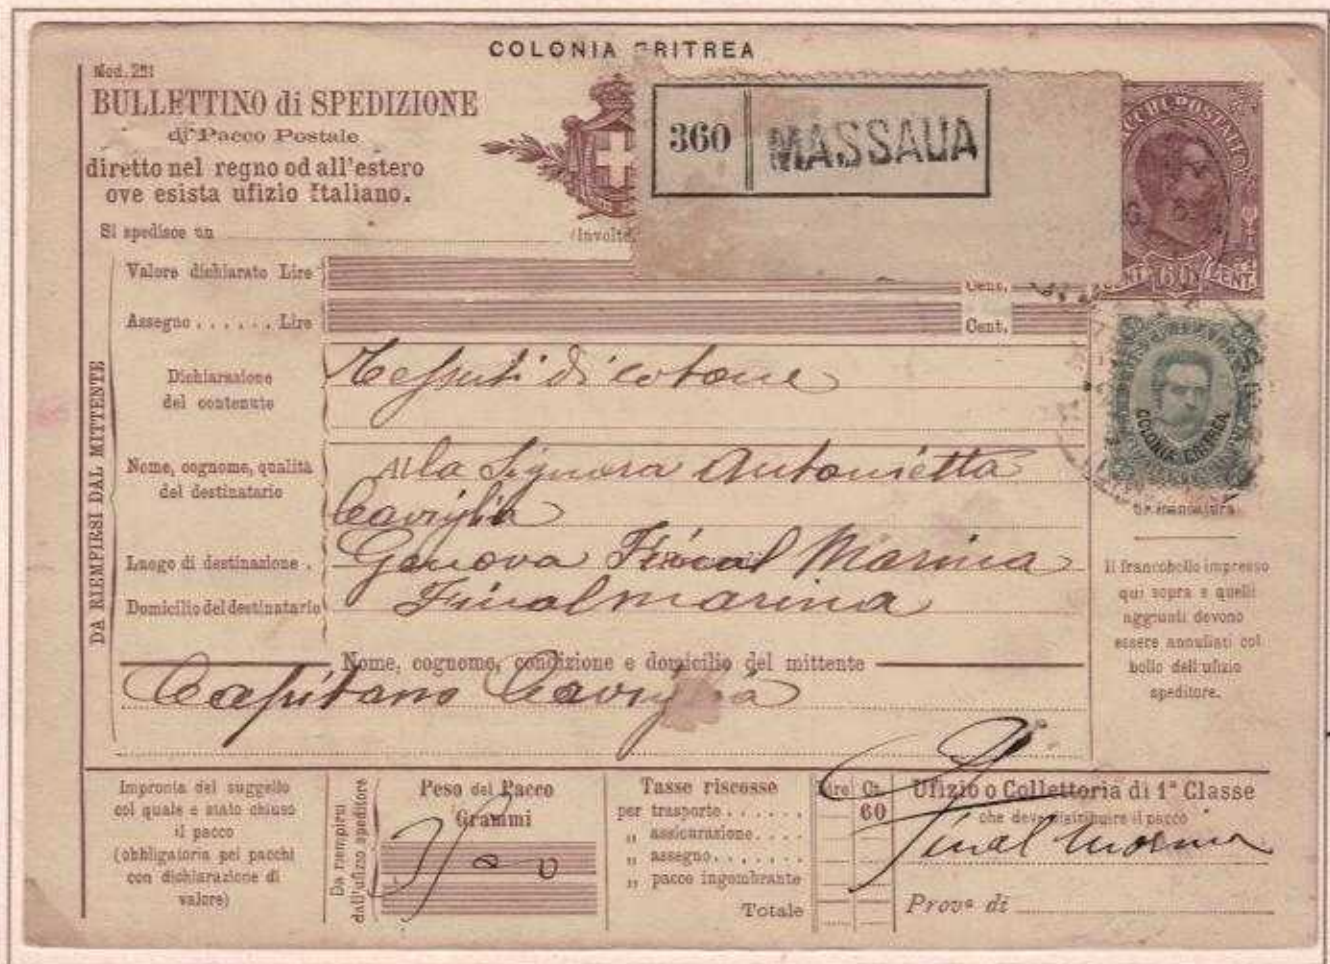 COLONIA ERITREA
Mod. 251
BULLETTINO di SPEDIZIONE
di Pacco Postale
diretto nel regno od all'estero
ove esista ufizio Italiano.
360 MASSAUA
PACCHI POSTALI
60 CENT.
Si spedisce un (involto,
Valore dichiarato Lire Cent.
Assegno . . . . . . Lire Cent.
COLONIA ERITREA
DA RIEMPIRSI DAL MITTENTE
Dichiarazione
del contenuto
Tessuti di cotone
Nome, cognome, qualità
del destinatario
Alla Signora Antonietta
Caviglia
Luogo di destinazione .
Genova Final Marina
Domicilio del destinatario
Finalmarina
Nome, cognome, condizione e domicilio del mittente
Capitano Caviglia
Il francobollo impresso
qui sopra e quelli
aggiunti devono
essere annullati col
bollo dell'ufizio
speditore.
Impronta del suggello
col quale è stato chiuso
il pacco
(obbligatoria pei pacchi
con dichiarazione di
valore)
Da riempirsi
dall'ufizio speditore
Peso del Pacco
Grammi
Tasse riscosse Lire Ct.
per trasporte . . . . . . 60
„ assicurazione. . . .
„ assegno. . . . . . .
„ pacco ingombrante
Totale
Ufizio o Collettoria di 1ª Classe
che deve distribuire il pacco
Final Marina
Provª di